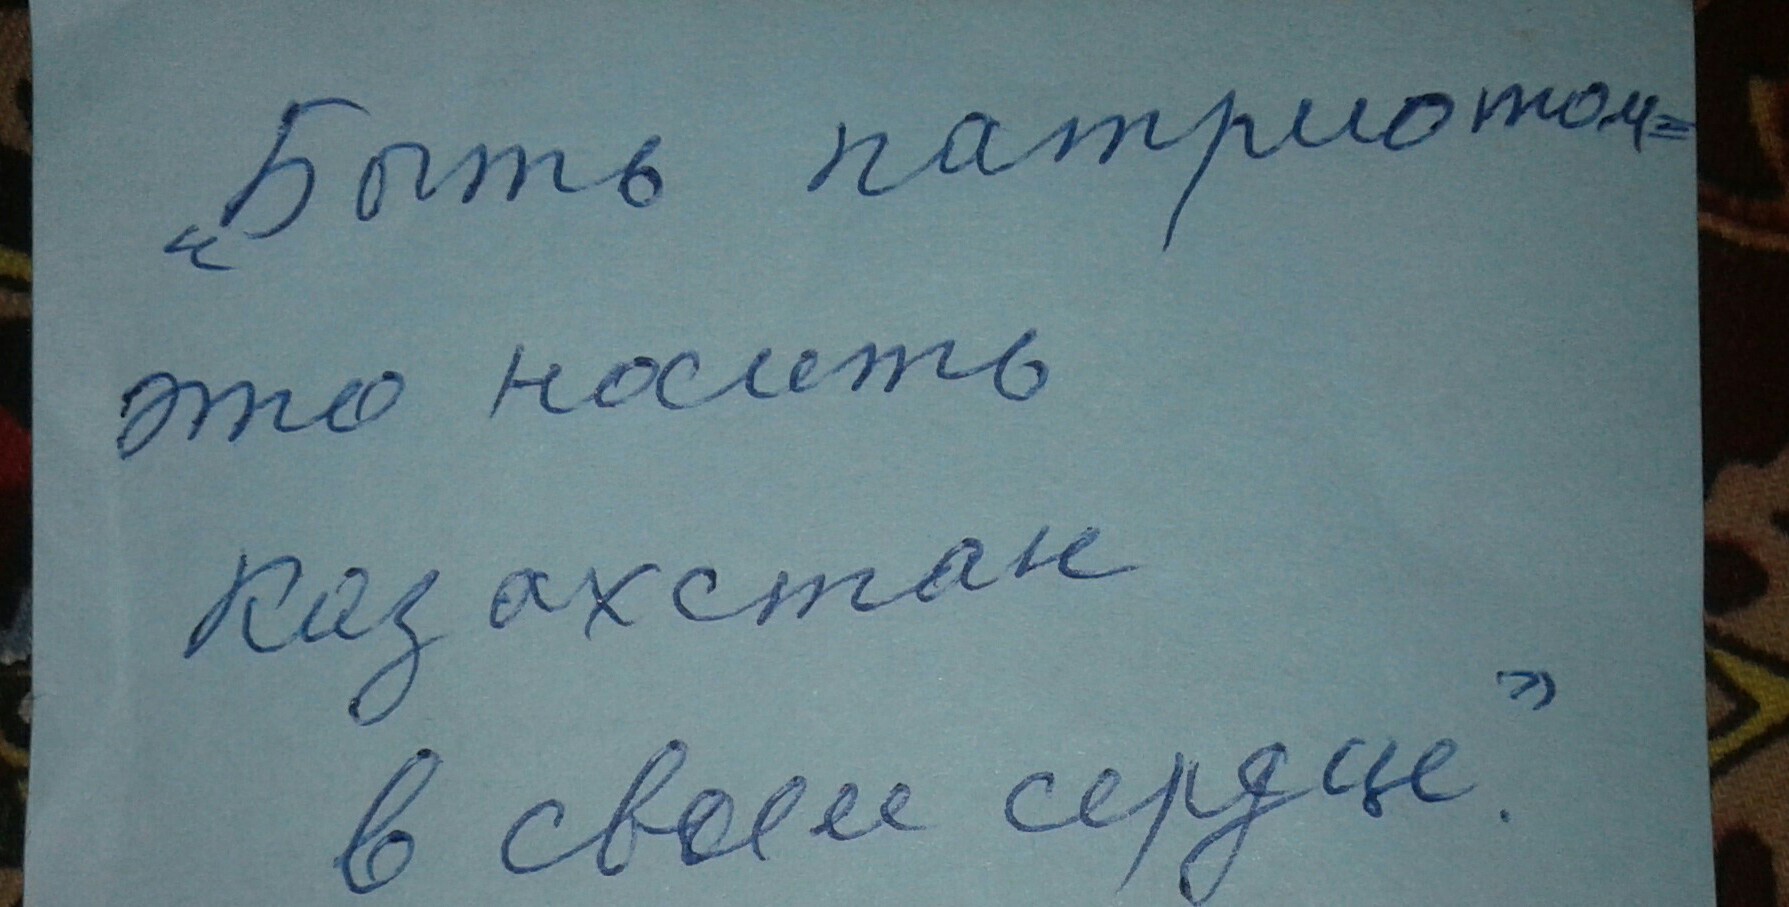 „Быть патриотом=
это носить
Казахстан
в своем сердце."